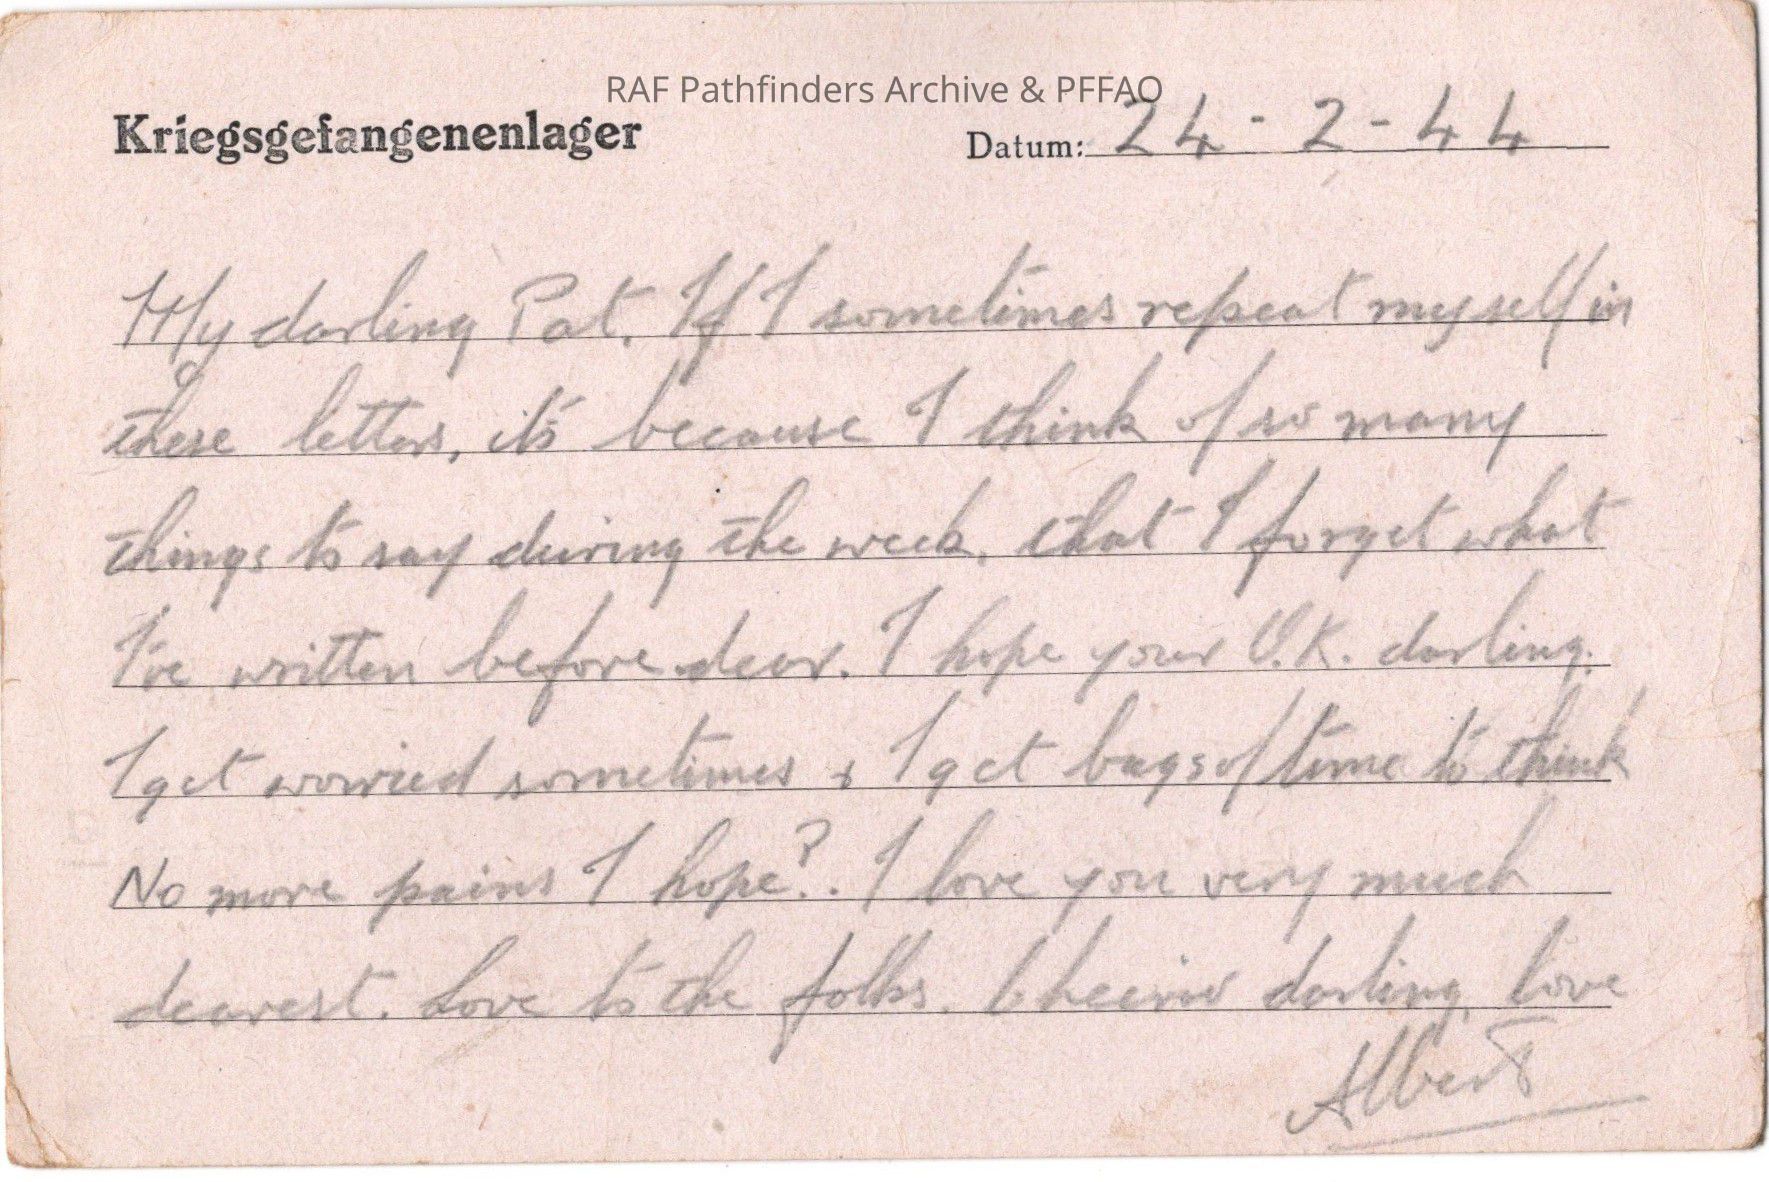 RAF Pathfinders Archive & PFFAO
Kriegsgefangenenlager Datum: 24-2-44
My darling Pat. If I sometimes repeat myself in
these letters, it's because I think of so many
things to say during the week, that I forget what
I've written before dear. I hope your O.K. darling.
I get worried sometimes & I get bags of time to think
No more pains I hope?. I love you very much
dearest. Love to the folks. Cheerio darling, love
Albert